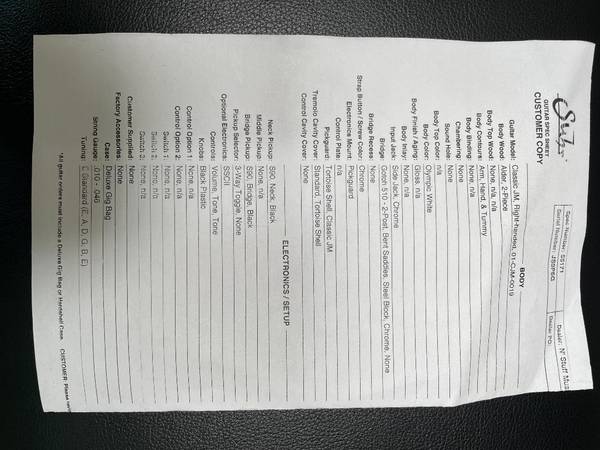 Suhr
GUITAR SPEC SHEET
CUSTOMER COPY
Spec Number: 55171
Dealer: N' Stuff Mus
Dealer PO:
BODY
Guitar Model: Classic JM, Right-handed, 01-CJM-0019
Body Wood: Alder, 2-Piece
Body Top Wood: None, n/a, n/a
Body Contours: Arm, Hand, & Tummy
Body Binding: None, n/a
Chambering: None
Sound Hole: None
Body Top Color: n/a
Body Color: Olympic White
Body Finish / Aging: Gloss, n/a
Body Inlay: None, n/a
Input Jack: Side Jack, Chrome
Bridge: Gotoh 510 - 2-Post, Bent Saddles, Steel Block, Chrome, None
Bridge Recess: None
Strap Button / Screw Color: Chrome
Electronics Mount: Pickguard
Control Plate: n/a
Pickguard: Tortoise Shell, Classic JM
Tremolo Cavity Cover: Standard, Tortoise Shell
Control Cavity Cover: None
ELECTRONICS / SETUP
Neck Pickup: S90, Neck, Black
Middle Pickup: None, n/a
Bridge Pickup: S90, Bridge, Black
Pickup Selector: 3-Way Toggle, None
Optional Electronics: SSCII
Controls: Volume, Tone, Tone
Knobs: Black Plastic
Control Option 1: None, n/a
Control Option 2: None, n/a
Switch 1: None, n/a
Switch 2: None, n/a
Switch 3: None, n/a
Customer Supplied: None
Factory Accessories: None
Case: Deluxe Gig Bag
String Gauge: .010 - .046
Tuning: E Standard (E, A, D, G, B, E)
*All guitar orders must include a Deluxe Gig Bag or Hardshell Case.
CUSTOMER: Please